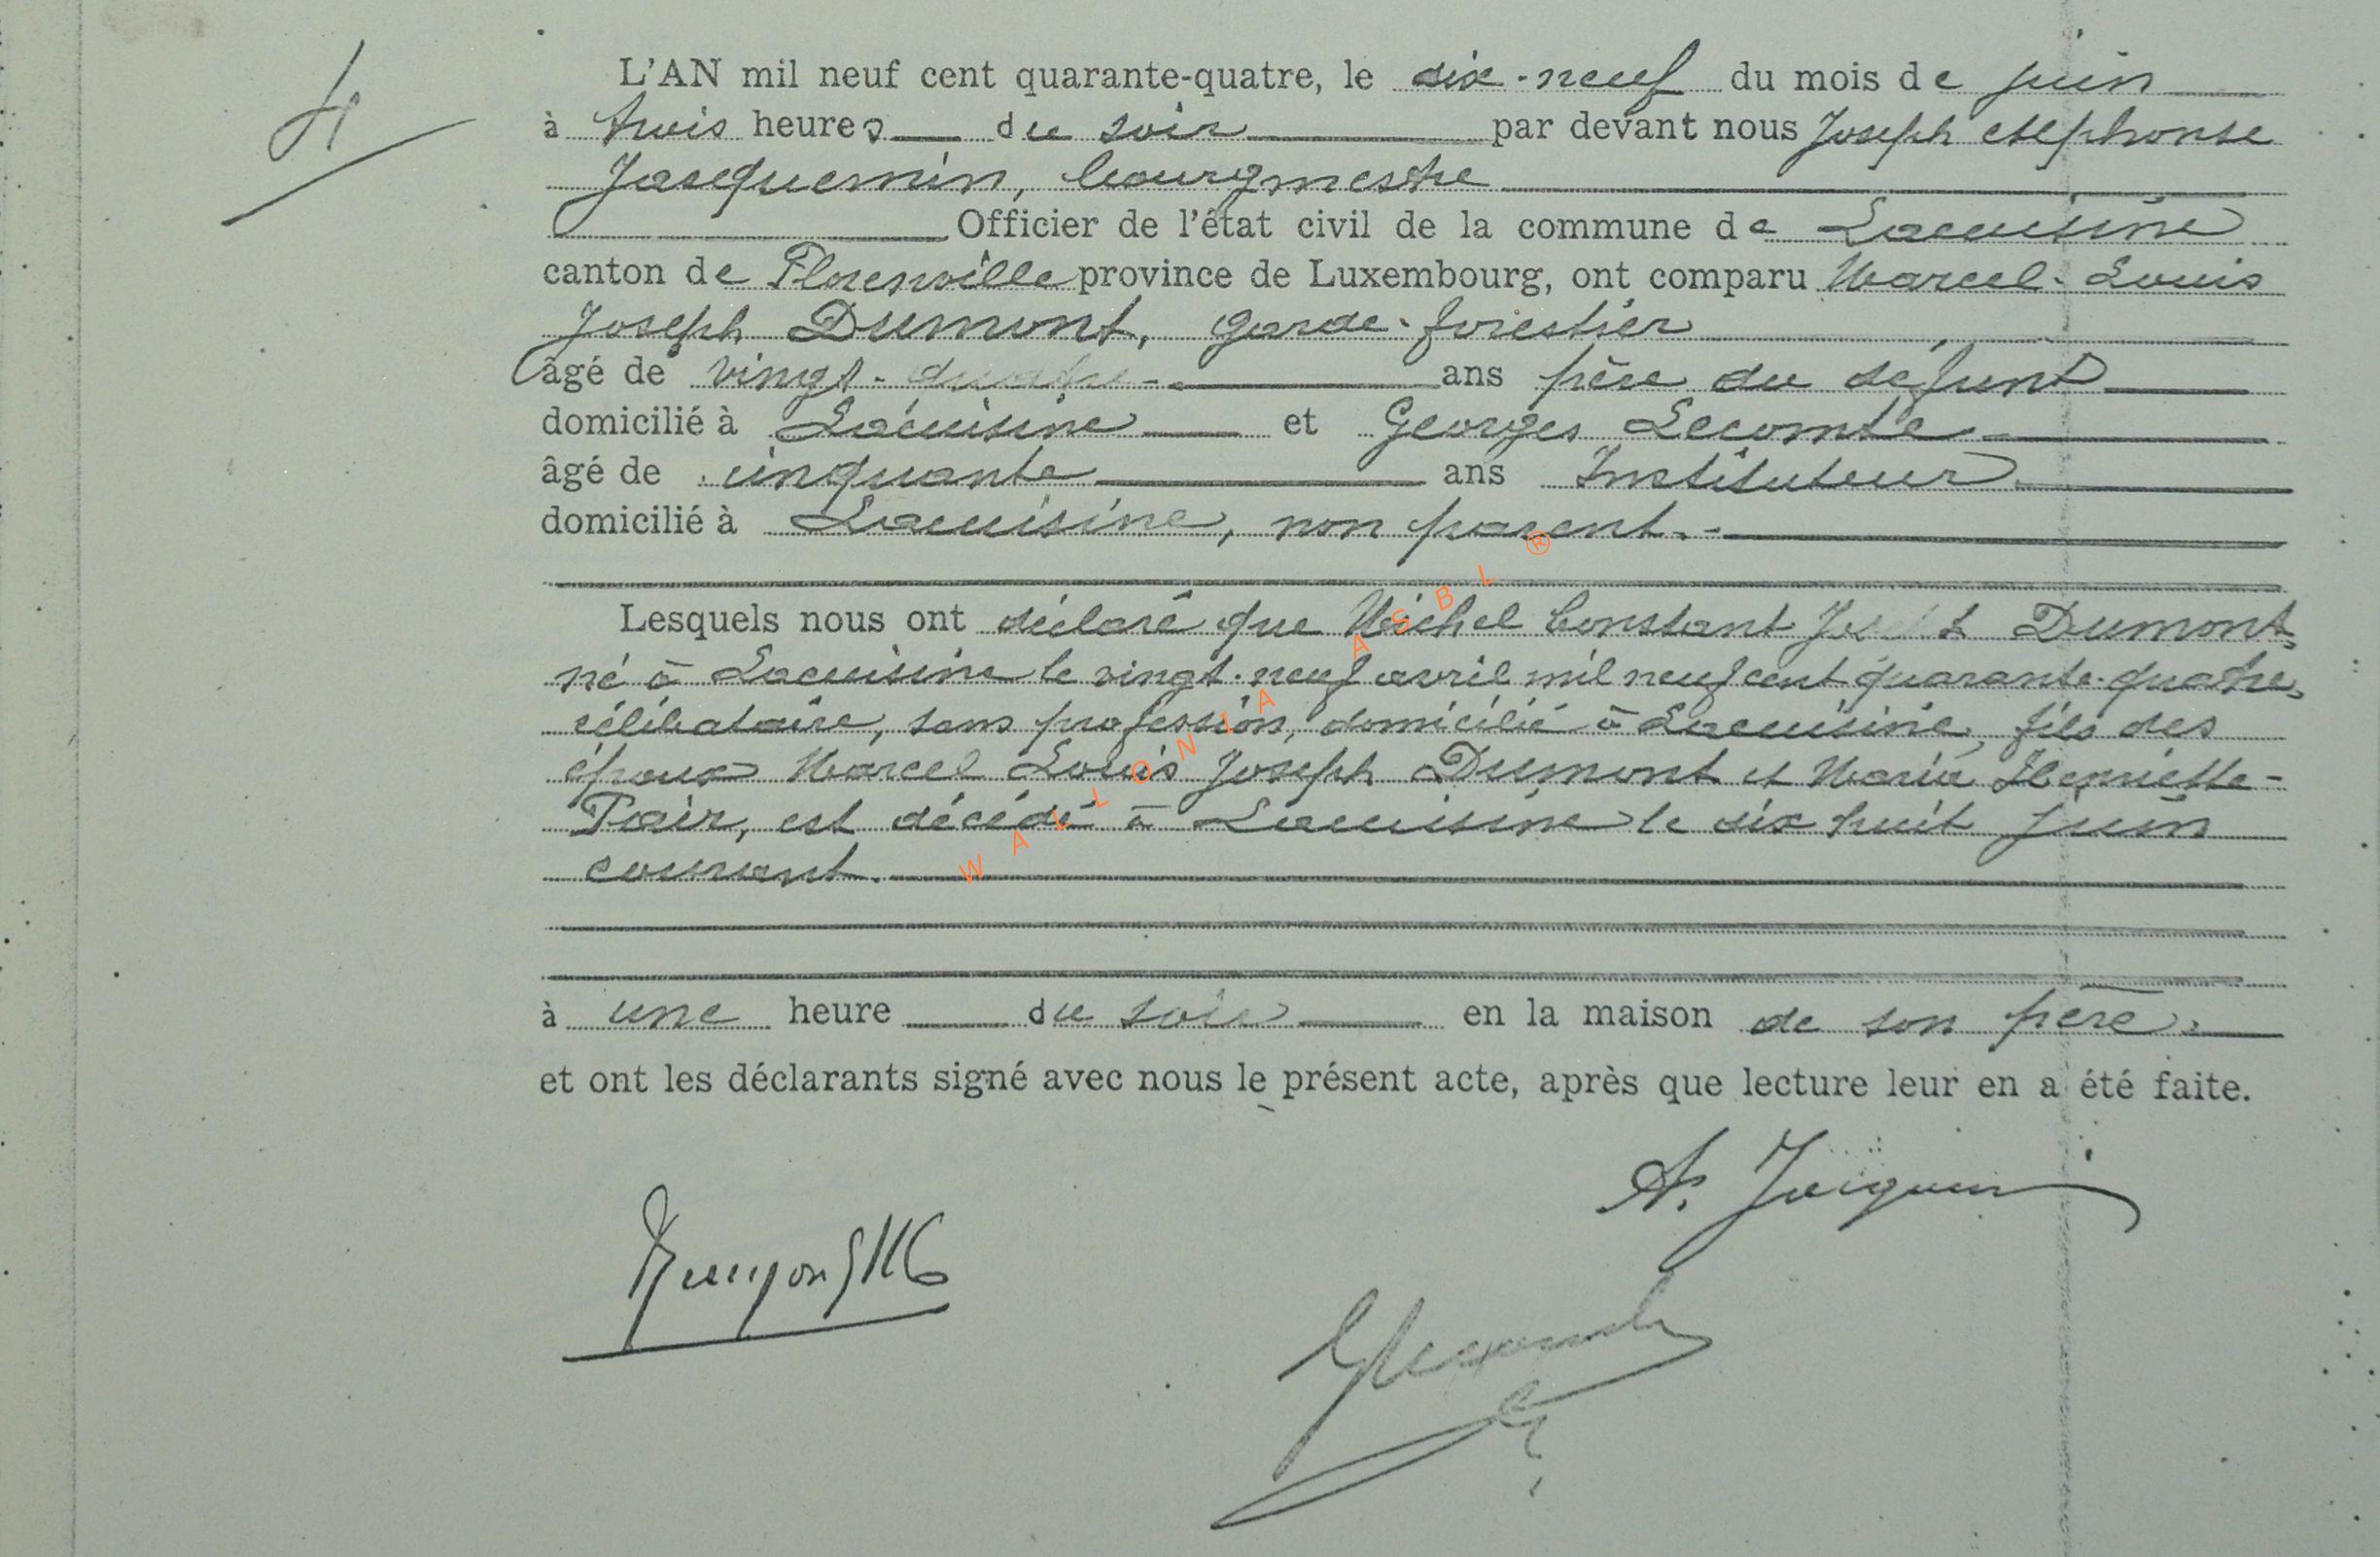 4
L'AN mil neuf cent quarante-quatre, le dix-neuf du mois de juin
à trois heures du soir par devant nous Joseph Alphonse
Jacquemin, bourgmestre
Officier de l'état civil de la commune de Lacuisine
canton de Florenville province de Luxembourg, ont comparu Marcel-Louis
Joseph Dumont, garde-forestier
âgé de vingt-quatre ans père du défunt
domicilié à Lacuisine et Georges Lecomte
âgé de cinquante ans Instituteur
domicilié à Lacuisine, non parent.
Lesquels nous ont déclaré que Michel Constant Dumont,
né à Lacuisine le vingt-neuf avril mil neuf cent quarante-quatre,
célibataire, sans profession, domicilié à Lacuisine, fils des
époux Marcel Louis Joseph Dumont et Maria Henriette
est décédé à Lacuisine le dix huit juin
courant.
à une heure du soir en la maison de son père.
et ont les déclarants signé avec nous le présent acte, après que lecture leur en a été faite.
WALLONIA ASBL ®